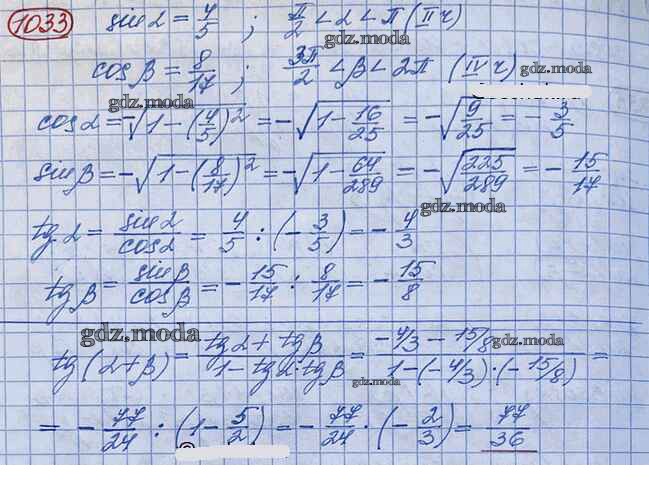 1033 sin α = 4/5 ; π/2 < α < π (II ч)
gdz.moda
cos β = 8/17 ; 3π/2 < β < 2π (IV ч) gdz.moda
gdz.moda
cos α = -√(1-(4/5)²) = -√(1-16/25) = -√(9/25) = -3/5
sin β = -√(1-(8/17)²) = -√(1-64/289) = -√(225/289) = -15/17
gdz.moda
tg α = sin α/cos α = 4/5 : (-3/5) = -4/3
tg β = sin β/cos β = -15/17 : 8/17 = -15/8
gdz.moda
tg(α+β) = (tg α + tg β)/(1 - tg α · tg β) = (-4/3 - 15/8)/(1-(-4/3)·(-15/8)) =
gdz.moda
gdz.moda
= -77/24 : (1-5/2) = -77/24 · (-2/3) = 77/36